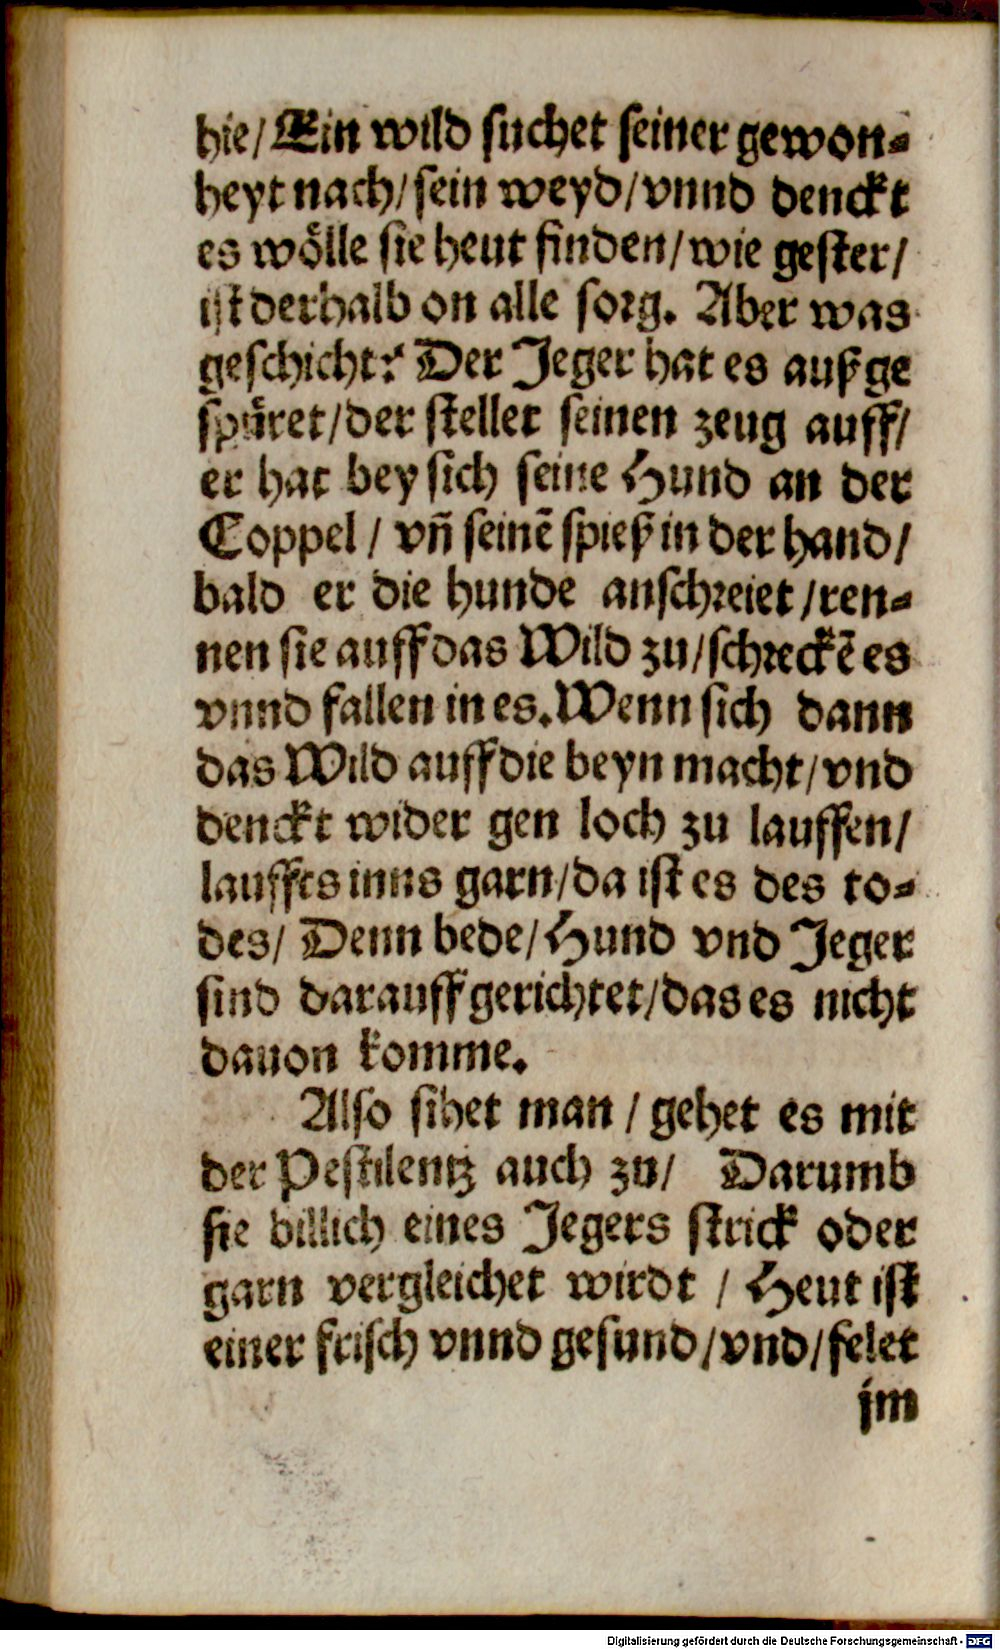 hie/ Ein wild suchet seiner gewon⸗
heyt nach/ sein weyd/ vnnd denckt
es woͤlle sie heut finden/ wie gester/
ist derhalb on alle sorg. Aber was
geschicht? Der Jeger hat es außge
spuͤret/ der stellet seinen zeug auff/
er hat bey sich seine Hund an der
Coppel / vñ seinẽ spieß in der hand/
bald er die hunde anschreiet / ren⸗
nen sie auff das Wild zu/ schreckẽ es
vnnd fallen in es. Wenn sich dann
das Wild auff die beyn macht/ vnd
denckt wider gen loch zu lauffen/
lauffts inns garn/ da ist es des to⸗
des/ Denn bede/ Hund vnd Jeger
sind darauff gerichtet/ das es nicht
dauon komme.
Also sihet man / gehet es mit
der Pestilentz auch zu/ Darumb
sie billich eines Jegers strick oder
garn vergleichet wirdt / Heut ist
einer frisch vnnd gesund/ vnd/ felet
jm
Digitalisierung gefördert durch die Deutsche Forschungsgemeinschaft - DFG